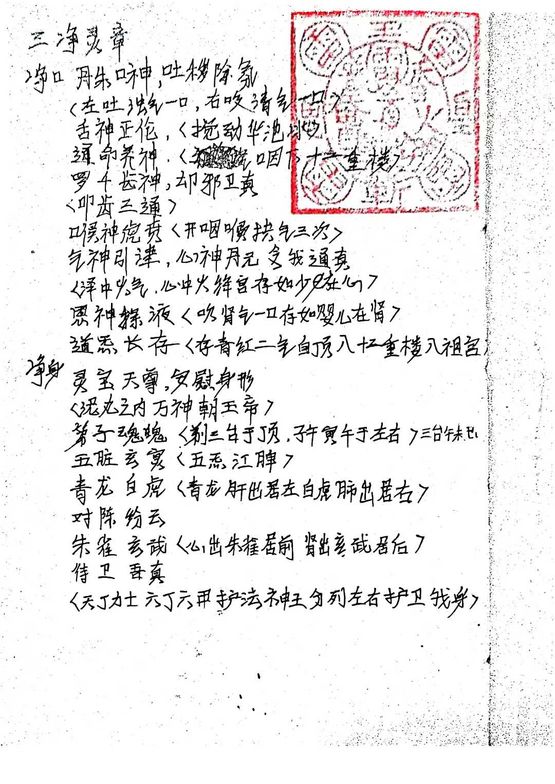 三净灵章
净口 丹朱口神，吐秽除氛
〈左吐浊气一口，右咬清气一口〉
舌神正伦，〈搅动华池
通命养神，〈 咽下十二重楼〉
罗千齿神，却邪卫真
〈叩齿三通〉
喉神虎贲〈开咽喉 气三次〉
气神引津，心神丹元 令我通真
心中火 宫存如少 在心〉
思神 液〈 肾气一口存如婴儿在肾〉
道炁长存〈存青红二气自顶入十二重楼入祖宫
净身 灵宝天尊，安慰身形
〈泥丸之内万神朝玉帝〉
弟子魂魄〈 三台于顶，子午寅午于左右〉三台
五脏玄冥〈五炁江脾〉
青龙白虎〈青龙肝出居左白虎肺出居右〉
对陈纷云
朱雀玄武〈心出朱雀居前 肾出玄武居后〉
侍卫吾真
〈天丁力士 六丁六甲护法神王分列左右护卫我身〉